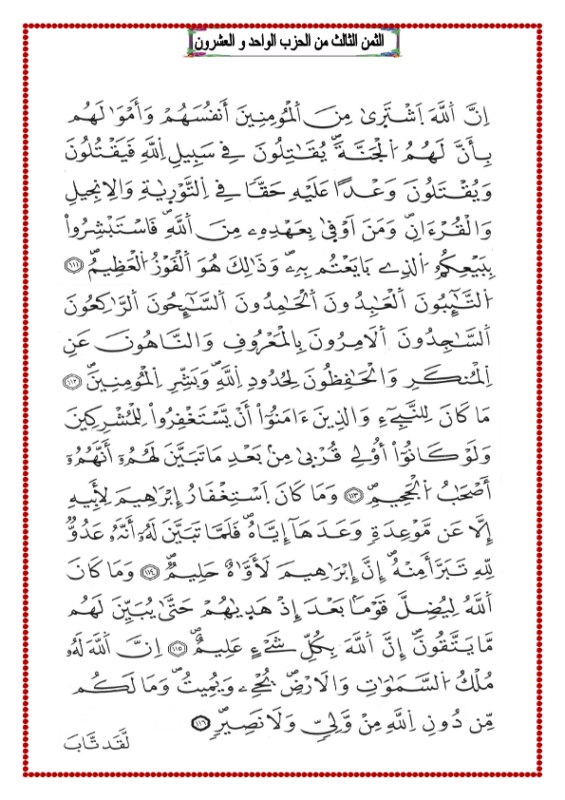 الثمن الثالث من الحزب الواحد و العشرون
اِنَّ اَ۬للَّهَ اَ۪شْتَر۪يٰ مِنَ اَ۬لْمُومِنِينَ أَنفُسَهُمْ وَأَمْوَٰلَهُم
بِأَنَّ لَهُمُ اُ۬لْجَنَّةَۖ يُقَٰتِلُونَ فِے سَبِيلِ اِ۬للَّهِ فَيَقْتُلُونَ
وَيُقْتَلُونَ وَعْداً عَلَيْهِ حَقّاٗ فِے اِ۬لتَّوْر۪يٰةِ وَالِانجِيلِ
وَالْقُرْءَانِۖ وَمَنَ اَوْف۪يٰ بِعَهْدِهِۦ مِنَ اَ۬للَّهِۖ فَاسْتَبْشِرُواْ
بِبَيْعِكُمُ اُ۬لذِے بَايَعْتُم بِهِۦۖ وَذَٰلِكَ هُوَ اَ۬لْفَوْزُ اُ۬لْعَظِيمُۖ ١١١
اُ۬لتَّٰٓئِبُونَ اَ۬لْعَٰبِدُونَ اَ۬لْحَٰمِدُونَ اَ۬لسَّٰٓئِحُونَ اَ۬لرَّٰكِعُونَ
اَ۬لسَّٰجِدُونَ اَ۬لَامِرُونَ بِالْمَعْرُوفِ وَالنَّاهُونَ عَنِ
اِ۬لْمُنكَرِ وَالْحَٰفِظُونَ لِحُدُودِ اِ۬للَّهِۖ وَبَشِّرِ اِ۬لْمُومِنِينَۖ ١١٢
مَا كَانَ لِلنَّبِےٓءِ وَالذِينَ ءَامَنُوٓاْ أَنْ يَّسْتَغْفِرُواْ لِلْمُشْرِكِينَ
وَلَوْ كَانُوٓاْ أُوْلِے قُرْب۪يٰ مِنۢ بَعْدِ مَا تَبَيَّنَ لَهُمُۥٓ أَنَّهُمُۥٓ
أَصْحَٰبُ اُ۬لْجَحِيمِۖ ١١٣ وَمَا كَانَ اَ۪سْتِغْفَارُ إِبْرَٰهِيمَ لِأَبِيهِ
إِلَّا عَن مَّوْعِدَةٖ وَعَدَهَآ إِيَّاهُۖ فَلَمَّا تَبَيَّنَ لَهُۥٓ أَنَّهُۥ عَدُوّٞ
لِّلهِ تَبَرَّأَ مِنْهُۖ إِنَّ إِبْرَٰهِيمَ لَأَوَّٰهٌ حَلِيمٞۖ ١١٤ وَمَا كَانَ
اَ۬للَّهُ لِيُضِلَّ قَوْماَۢ بَعْدَ إِذْ هَد۪يٰهُمْ حَتَّىٰ يُبَيِّنَ لَهُم
مَّا يَتَّقُونَۖ إِنَّ اَ۬للَّهَ بِكُلِّ شَےْءٍ عَلِيمٌۖ ١١٥ اِنَّ اَ۬للَّهَ لَهُۥ
مُلْكُ اُ۬لسَّمَٰوَٰتِ وَالَارْضِۖ يُحْيِۦ وَيُمِيتُۖ وَمَا لَكُم
مِّن دُونِ اِ۬للَّهِ مِنْ وَّلِيّٖ وَلَا نَصِيرٖۖ ١١٦
لَّقَد تَّابَ